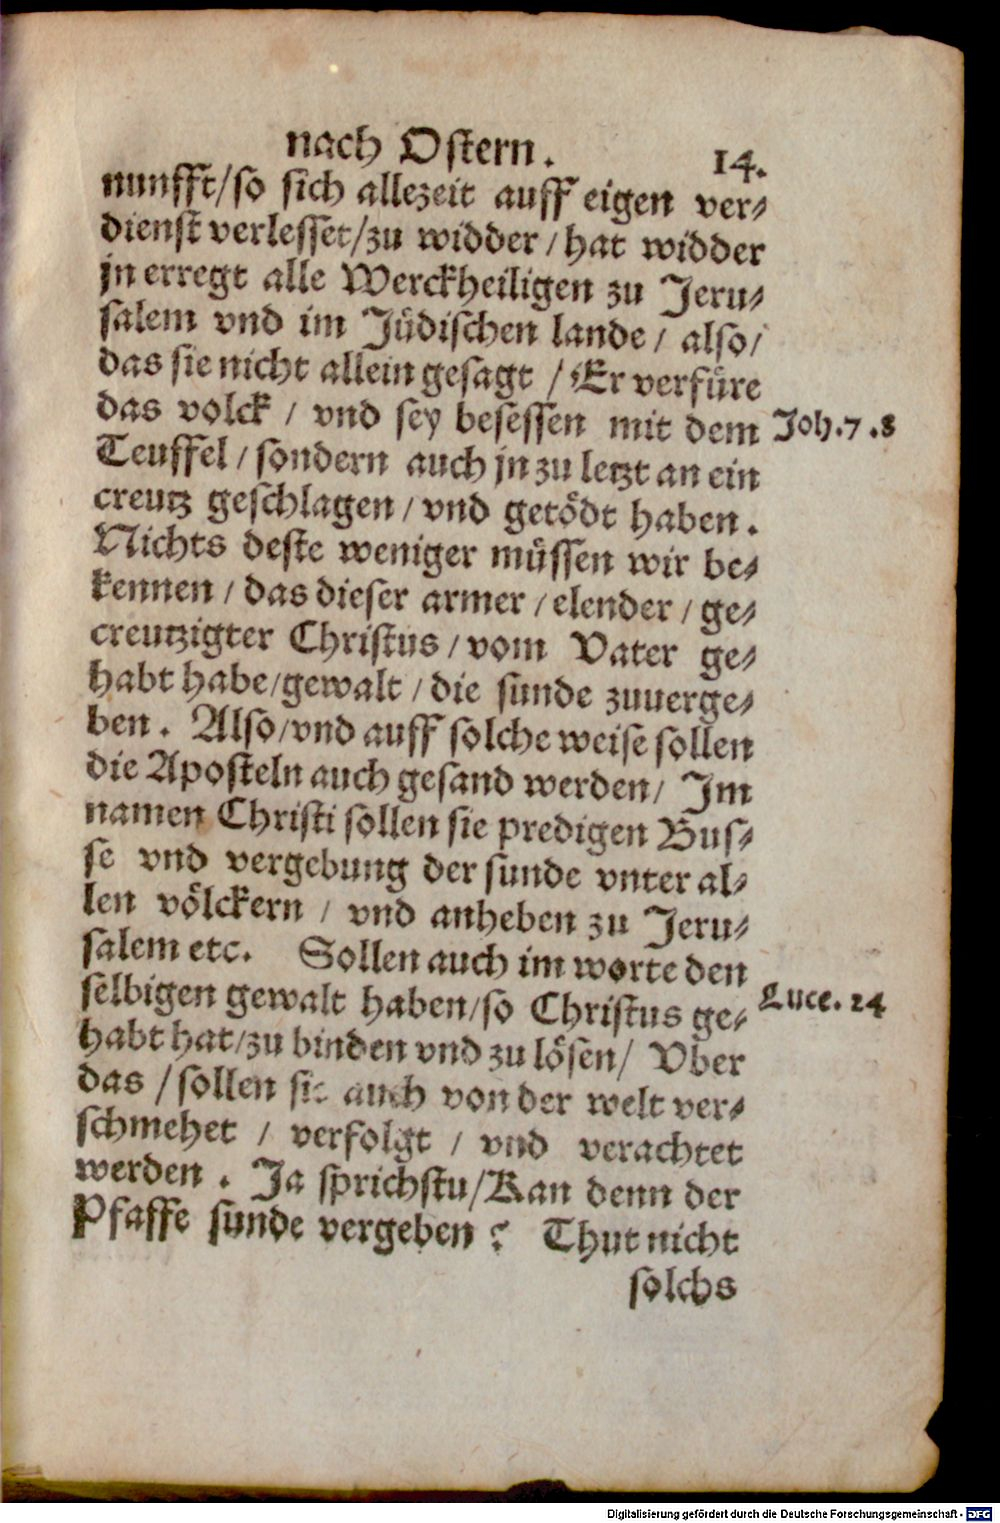 nach Ostern.
14.
nunfft/so sich allezeit auff eigen ver⸗
dienst verlesset/zu widder/hat widder
jn erregt alle Werckheiligen zu Jeru⸗
salem vnd im Jüdischen lande/ also/
das sie nicht allein gesagt /Er verfüre
das volck / vnd sey besessen mit dem
Joh.7.8
Teuffel/sondern auch jn zu letzt an ein
creutz geschlagen/vnd getödt haben.
Nichts deste weniger müssen wir be⸗
kennen/das dieser armer/elender/ge⸗
creutzigter Christus/vom Vater ge⸗
habt habe/gewalt/die sunde zuuerge⸗
ben. Also/vnd auff solche weise sollen
die Aposteln auch gesand werden/ Im
namen Christi sollen sie predigen Bus⸗
se vnd vergebung der sunde vnter al⸗
len völckern / vnd anheben zu Jeru⸗
salem etc. Sollen auch im worte den
selbigen gewalt haben/so Christus ge⸗
Luce.24
habt hat/zu binden vnd zu lösen/ Vber
das /sollen sie auch von der welt ver⸗
schmehet / verfolgt / vnd verachtet
werden. Ja sprichstu/Kan denn der
Pfaffe sunde vergeben? Thut nicht
solchs
Digitalisierung gefördert durch die Deutsche Forschungsgemeinschaft - DFG